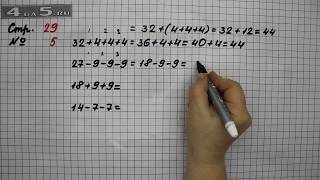 4GDZ.RU
Стр. 29 = 32+(4+4+4)=32+12=44
1 2 3
№ 5 32+4+4+4=36+4+4=40+4=44
1 2 3
27-9-9-9=18-9-9=
18+9+9=
14-7-7=